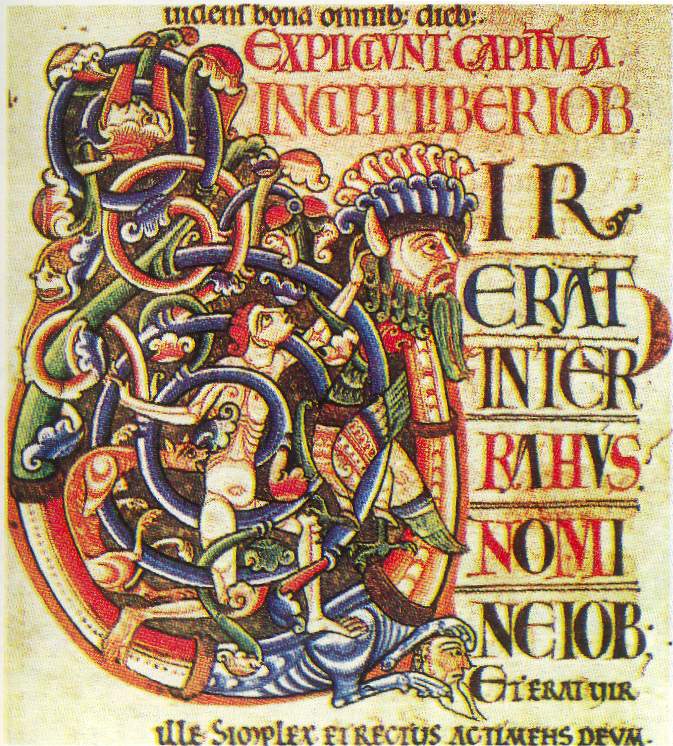 uidens bona omnib: dieb:.
EXPLICIVNT CAPITVLA.
INCIPT LIBER IOB.
VIR
ERAT
INTER
RAHVS.
NOMI
NE IOB;
ET ERAT UIR
ILLE SIMPLEX ET RECTUS AC TIMENS DEVM.